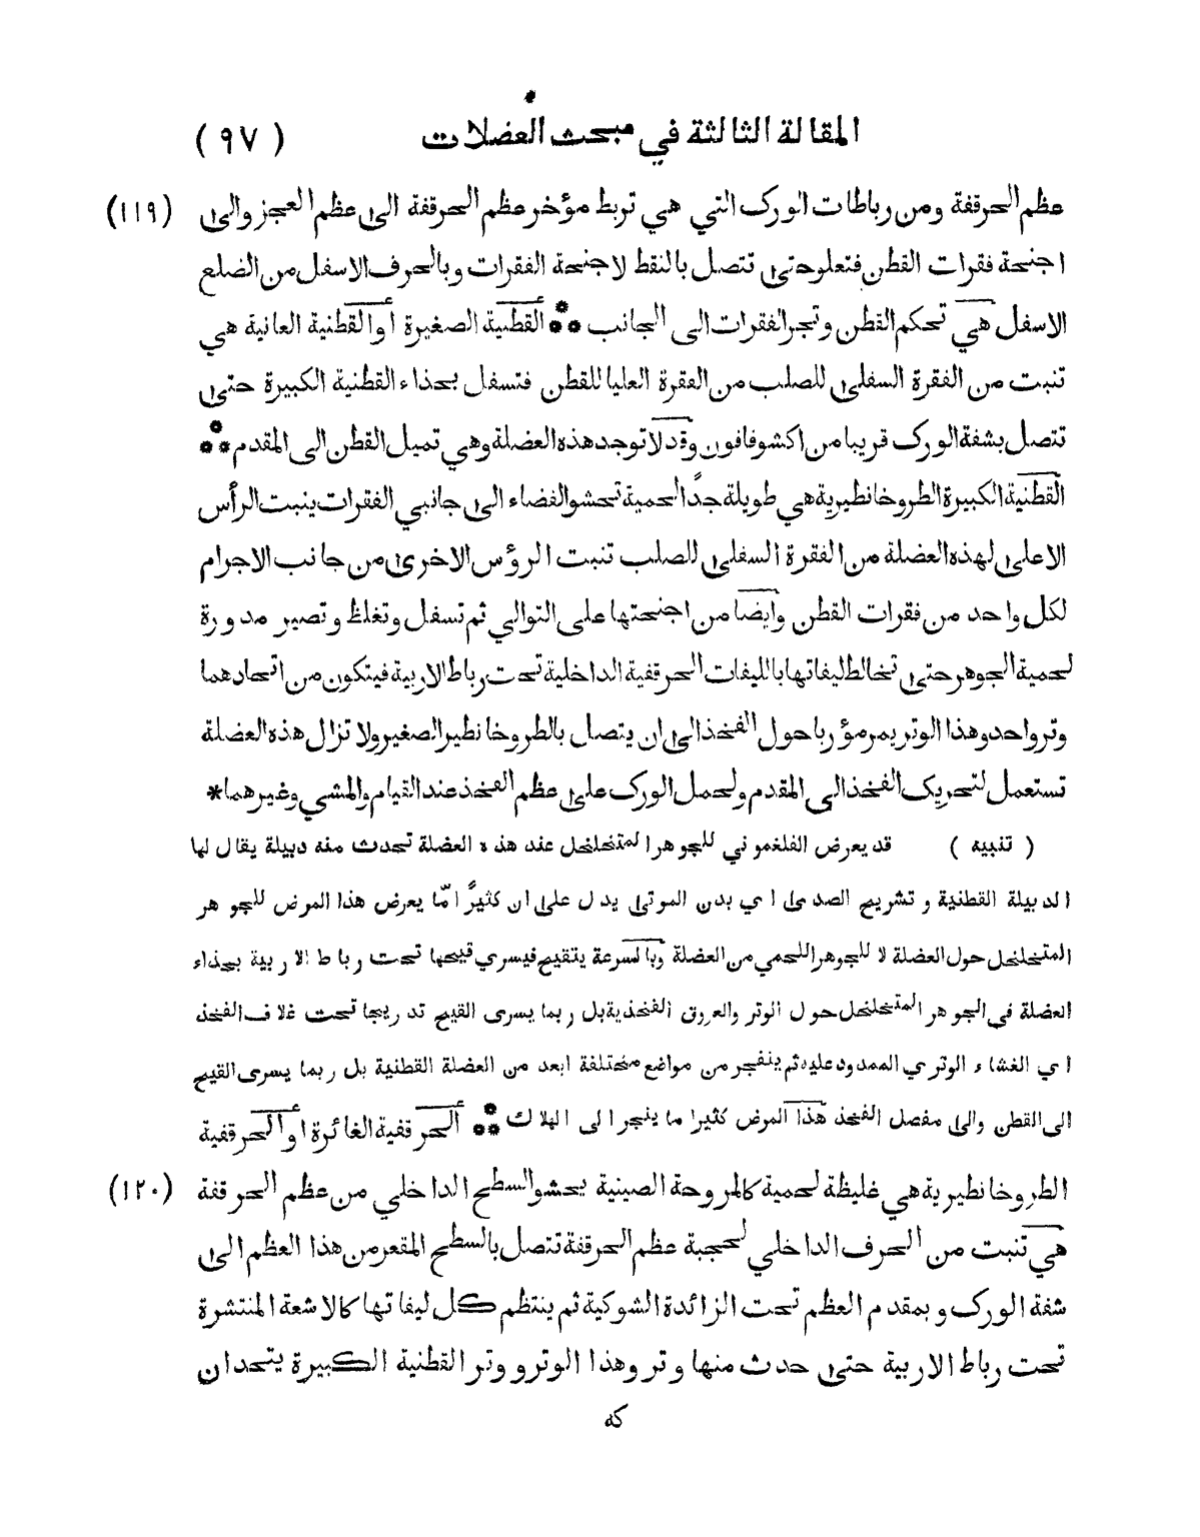 المقالة الثالثة في مبحث العضلات (٩٧)
عظم الحرقفة ومن رباطات الورك التي هي تربط مؤخر عظم الحرقفة الى عظم العجز والى (١١٩)
اجنحة فقرات القطن فتعلو حتى تتصل بالنقط لاجنحة الفقرات وبالحرف الاسفل من الضلع
الاسفل هي تحكم القطن وتجر الفقرات الى الجانب ⁂ القطنية الصغيرة أو القطنية العانية هي
تنبت من الفقرة السفلى للصلب من الفقرة العليا للقطن فتسفل بحذاء القطنية الكبيرة حتى
تتصل بشفة الورك قريبا من اكشوفافون وقد لا توجد هذه العضلة وهي تميل القطن الى المقدم ⁂
القطنية الكبيرة الطروخانطيرية هي طويلة جدًا لحمية تحشو الفضاء الى جانبي الفقرات ينبت الرأس
الاعلى لهذه العضلة من الفقرة السفلى للصلب تنبت الرؤس الاخرى من جانب الاجرام
لكل واحد من فقرات القطن وأيضا من اجنحتها على التوالي ثم تسفل وتغلظ وتصير مدورة
لحمية الجوهر حتى تخالط ليفاتها بالليفات الحرقفية الداخلية تحت رباط الاربية فيتكون من اتحادهما
وتر واحد وهذا الوتر يمر مؤربا حول الفخذ الى ان يتصل بالطروخانطير الصغير ولا تزال هذه العضلة
تستعمل لتحريك الفخذ الى المقدم ولحمل الورك على عظم الفخذ عند القيام والمشي وغيرهما *
( تنبيه ) قد يعرض الفلغموني للجوهر المتخلخل عند هذه العضلة تحدث منه دبيلة يقال لها
الدبيلة القطنية وتشريح الصدى اي بدن الموتى يدل على ان كثيرًا امّا يعرض هذا المرض للجوهر
المتخلخل حول العضلة لا للجوهر اللحمي من العضلة وبالسرعة يتقيح فيسري قيحها تحت رباط الاربية بحذاء
العضلة في الجوهر المتخلخل حول الوتر والعروق الفخذية بل ربما يسرى القيح تدريجا تحت غلاف الفخذ
اي الغشاء الوتري الممدود عليه ثم ينفجر من مواضع مختلفة ابعد من العضلة القطنية بل ربما يسرى القيح
الى القطن والى مفصل الفخذ هذا المرض كثيرا ما ينجر الى الهلاك ⁂ ألحرقفية الغائرة اوألحرقفية
الطروخانطيرية هي غليظة لحمية كالمروحة الصينية يحشو السطح الداخلي من عظم الحرقفة (١٢٠)
هي تنبت من الحرف الداخلي لحجبة عظم الحرقفة تتصل بالسطح المقعر من هذا العظم الى
شفة الورك وبمقدم العظم تحت الزائدة الشوكية ثم ينتظم كل ليفاتها كالاشعة المنتشرة
تحت رباط الاربية حتى حدث منها وتر وهذا الوتر ووتر القطنية الكبيرة يتحدان
كه